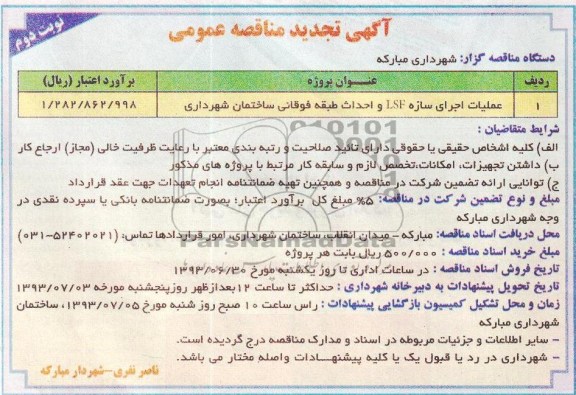 نوبت دوم
آگهی تجدید مناقصه عمومی
دستگاه مناقصه گزار: شهرداری مبارکه
ردیف عنـــوان پروژه برآورد اعتبار (ریال)
۱ عملیات اجرای سازه LSF و احداث طبقه فوقانی ساختمان شهرداری ۱/۲۸۲/۸۶۲/۹۹۸
شرایط متقاضیان :
الف) کلیه اشخاص حقیقی یا حقوقی دارای تائید صلاحیت و رتبه بندی معتبر با رعایت ظرفیت خالی (مجاز) ارجاع کار
ب) داشتن تجهیزات، امکانات،تخصص لازم و سابقه کار مرتبط با پروژه های مذکور
ج) توانایی ارائه تضمین شرکت در مناقصه و همچنین تهیه ضمانتنامه انجام تعهدات جهت عقد قرارداد
مبلغ و نوع تضمین شرکت در مناقصه: ۵% مبلغ کل برآورد اعتبار؛ بصورت ضمانتنامه بانکی یا سپرده نقدی در
وجه شهرداری مبارکه
محل دریافت اسناد مناقصه: مبارکه – میدان انقلاب، ساختمان شهرداری، امور قراردادها تماس: (۵۲۴۰۲۰۲۱-۰۳۱)
مبلغ خرید اسناد مناقصه : ۵۰۰/۰۰۰ ریال بابت هر پروژه
تاریخ فروش اسناد مناقصه : در ساعات اداری تا روز یکشنبه مورخ ۱۳۹۳/۰۶/۳۰
تاریخ تحویل پیشنهادات به دبیرخانه شهرداری : حداکثر تا ساعت ۱۲ بعدازظهر روزپنجشنبه مورخه ۱۳۹۳/۰۷/۰۳
زمان و محل تشکیل کمیسیون بازگشایی پیشنهادات : راس ساعت ۱۰ صبح روز شنبه مورخ ۱۳۹۳/۰۷/۰۵، ساختمان
شهرداری مبارکه
– سایر اطلاعات و جزئیات مربوطه در اسناد و مدارک مناقصه درج گردیده است.
– شهرداری در رد یا قبول یک یا کلیه پیشنهـــادات واصله مختار می باشد.
ناصر نفری–شهردار مبارکه
ParsNamadData